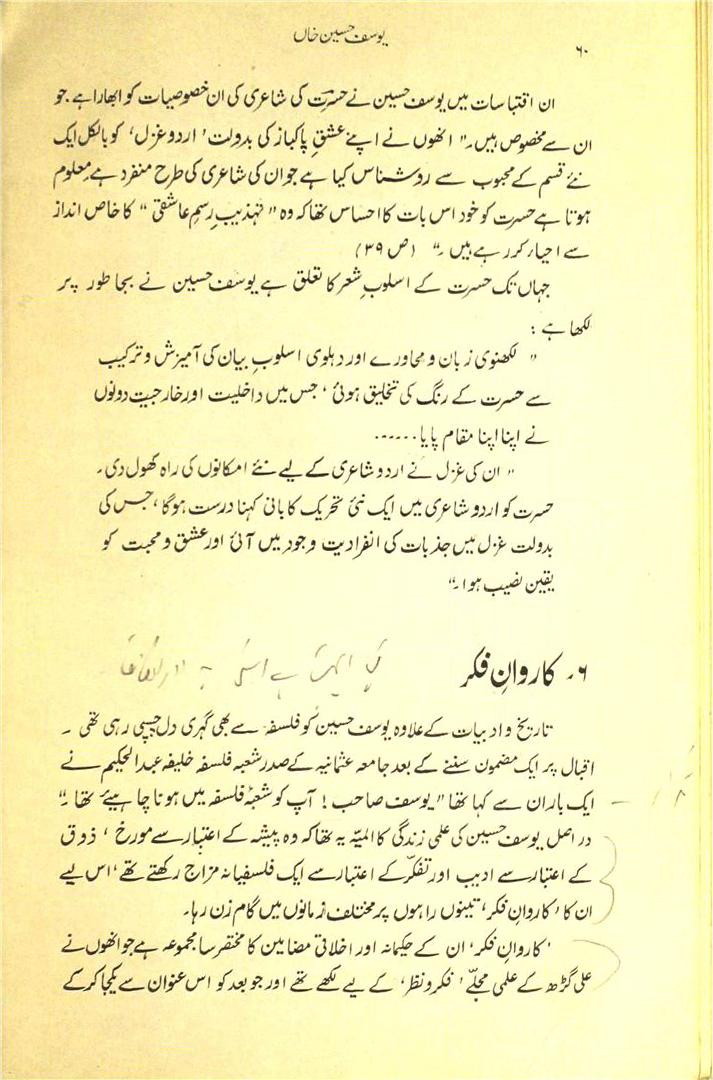 یوسف حسین خاں
۶۰
ان اقتباسات میں یوسف حسین نے حسرت کی شاعری کی ان خصوصیات کو ابھارا ہے جو
ان سے مخصوص ہیں۔ " انھوں نے اپنے عشقِ پاکباز کی بدولت ' اردو غزل ' کو بالکل ایک
نئے قسم کے محبوب سے روشناس کیا ہے جو ان کی شاعری کی طرح منفرد ہے معلوم
ہوتا ہے حسرت کو خود اس بات کا احساس تھا کہ وہ " تہذیبِ رسمِ عاشقی " کا خاص انداز
سے احیار کر رہے ہیں ۔ " (ص ۳۹)
جہاں تک حسرت کے اسلوبِ شعر کا تعلق ہے یوسف حسین نے بجا طور پر
لکھا ہے :
" لکھنوی زبان و محاورے اور دہلوی اسلوبِ بیان کی آمیزش و ترکیب
سے حسرت کے رنگ کی تخلیق ہوئی ، جس میں داخلیت اور خارجیت دونوں
نے اپنا اپنا مقام پایا......
" ان کی غزل نے اردو شاعری کے لیے نئے امکانوں کی راہ کھول دی۔
حسرت کو اردو شاعری میں ایک نئی تحریک کا بانی کہنا درست ہوگا ، جس کی
بدولت غزل میں جذبات کی انفرادیت وجود میں آئی اور عشق و محبت کو
یقین نصیب ہوا۔ "
۶۔ کاروانِ فکر
تاریخ و ادبیات کے علاوہ یوسف حسین کو فلسفہ سے بھی گہری دل چسپی رہی تھی ۔
اقبال پر ایک مضمون سننے کے بعد جامعہ عثمانیہ کے صدر شعبہ فلسفہ خلیفہ عبدالحکیم نے
ایک بار ان سے کہا تھا " یوسف صاحب ! آپ کو شعبۂ فلسفہ میں ہونا چاہیئے تھا ۔ "
در اصل یوسف حسین کی علمی زندگی کا المیہ یہ تھا کہ وہ پیشہ کے اعتبار سے مورخ ، ذوق
کے اعتبار سے ادیب اور تفکّر کے اعتبار سے ایک فلسفیانہ مزاج رکھتے تھے ، اس لیے
ان کا ' کاروانِ فکر ' تینوں راہوں پر مختلف زمانوں میں گام زن رہا۔
' کاروانِ فکر ' ان کے حکیمانہ اور اخلاقی مضامین کا مختصر سا مجموعہ ہے جو انھوں نے
علی گڑھ کے علمی مجلّے ' فکر و نظر ' کے لیے لکھے تھے اور جو بعد کو اس عنوان سے یکجا کر کے